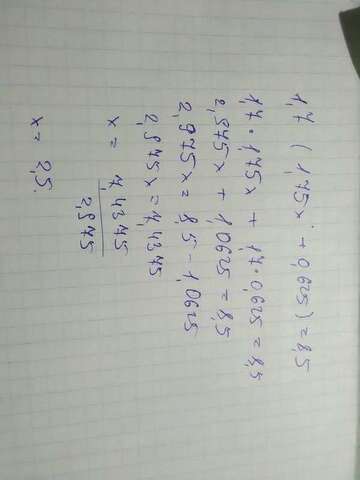 1,7 (1,75x + 0,625) = 8,5
1,7 · 1,75x + 1,7 · 0,625 = 8,5
2,975x + 1,0625 = 8,5
2,975x = 8,5 - 1,0625
2,975x = 7,4375
x = 7,4375
2,975
x = 2,5.